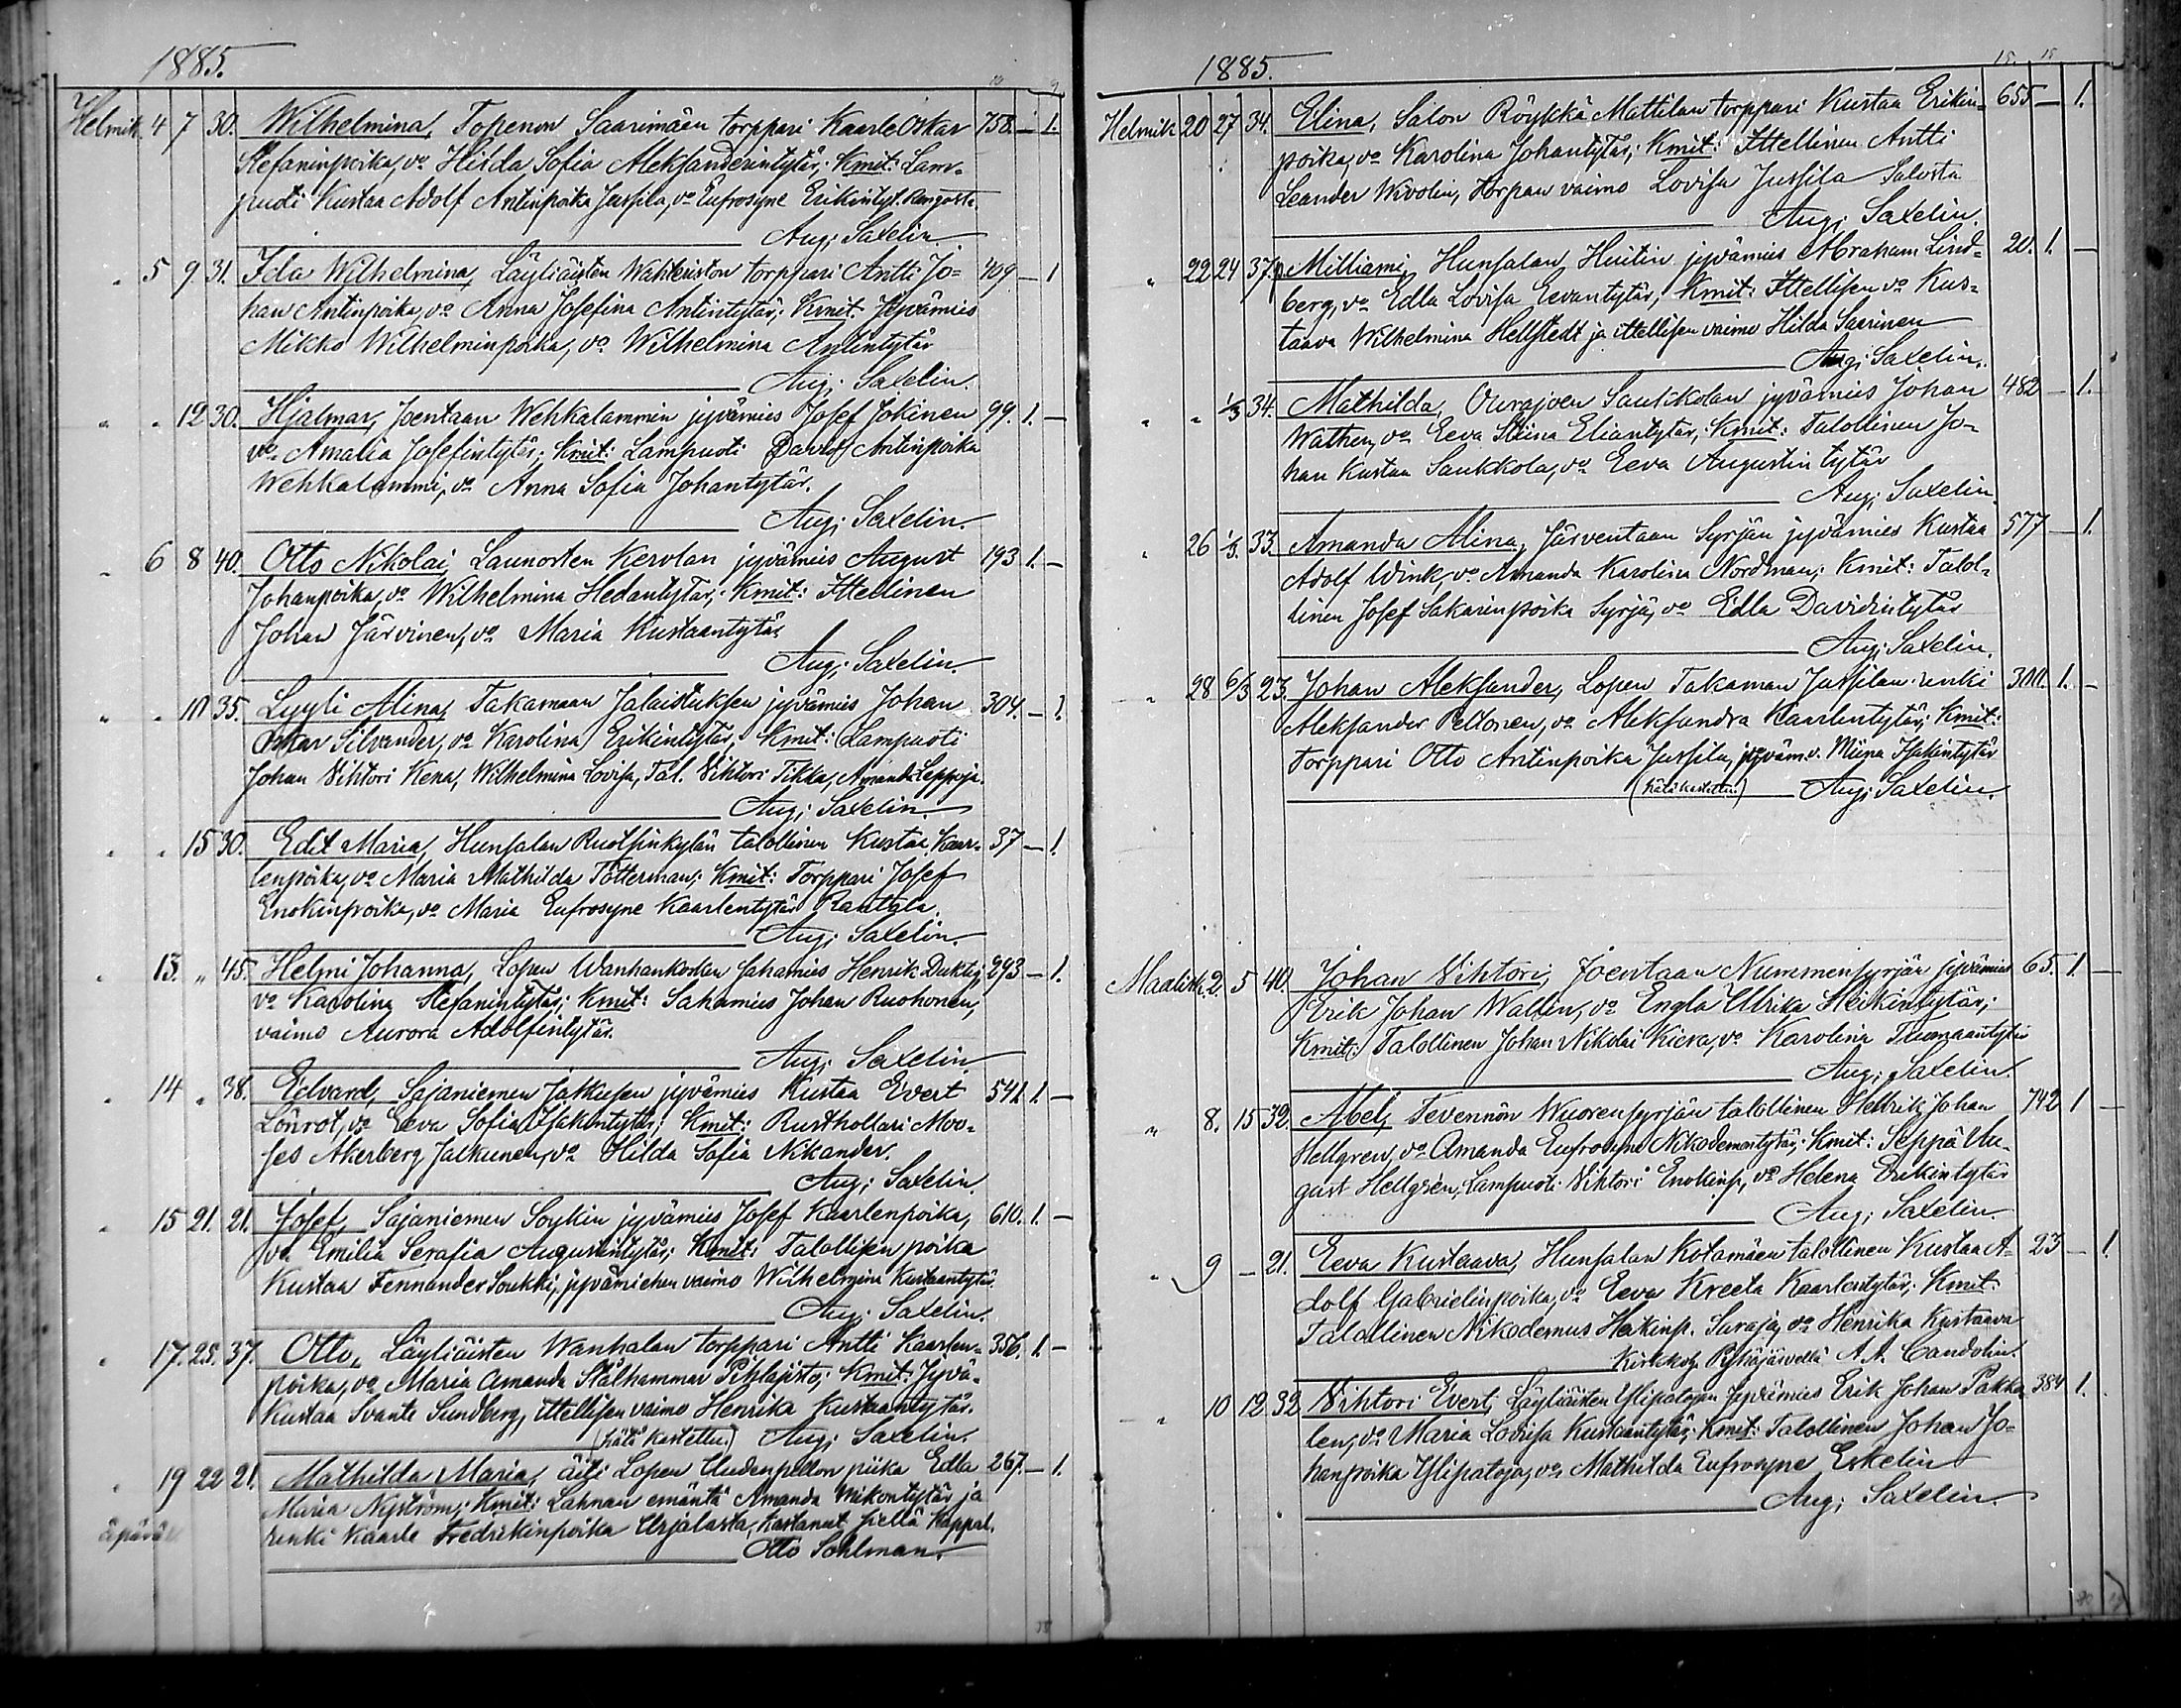 1885.
Helmik. 4 7 30. Wilhelmina, Topenon Saarimäen torppari Kaarle Oskar 758. — 1.
Stefaninpoika, vo Hilda Sofia Aleksanderintytär; Kmit: Lam-
puoti Kustaa Adolf Antinpoika Jussila, vo Eufrosyne Erikintyt.
Aug; Saxelin.
" 5 9 31. Ida Wilhelmina, Läyliäisten torppari Antti Jo- 409 — 1
han Antinpoika, vo Anna Josefina Antintytär; Kmit: Jyvämies
Mikko Wilhelminpoika, vo Wilhelmina Antintytär
Aug; Saxelin.
" " 12 30. Hjalmar, Joentaan Wehkalammin jyvämies Josef Jokinen 99. 1. —
vo Amalia Josefintytär; Kmit: Lampuoti David Antinpoika
Wehkalammi, vo Anna Sofia Johantytär.
Aug; Saxelin.
" 6 8 40. Otto Nikolai, Launosten Kerolan jyvämies August 193 1. —
Johanpoika, vo Wilhelmina Hedantytär; Kmit: Ittellinen
Johan Järvinen, vo Maria Kustaantytär
Aug; Saxelin.
" " 10 35. Lyyli Alina, Takamaan Jalaistuksen jyvämies Johan 304. — 1.
Oskar Silvander, vo Karolina Erikintytär; Kmit: Lampuoti
Johan Vihtori Kena, Wilhelmina Lovisa, Tal. Vihtori Tikka, Amanda Leppoja.
Aug; Saxelin.
" " 15 30. Edit Maria, Hunsalan Ruolsinkylän talollinen Kustaa Kaar- 37 — 1.
lenpoika, vo Maria Mathilda Tötterman; Kmit: Torppari Josef
Enokinpoika, vo Maria Eufrosyne Kaarlentytär Rantala.
Aug; Saxelin.
" 13. " 45. Helmi Johanna, Lopen Wanhankoskan sahamies Henrik Duktig, 293 — 1.
vo Karolina Stefanintytär; Kmit: Sahamies Johan Ruohonen,
vaimo Aurora Adolfintytär.
Aug; Saxelin.
" 14 " 38. Edvard, Sajaniemen Jatkusen jyvämies Kustaa Evert 541. 1. —
Lönrot, vo Eeva Sofia Isakintytär; Kmit: Rusthollari Moo-
ses Akerberg Jalkunen, vo Hilda Sofia Nikander.
Aug; Saxelin.
" 15 21. 21. Josef, Sajaniemen Soykin jyvämies Josef Kaarlenpoika, 610. 1. —
vo Emilia Serafia Augustintytär; Kmit: Talollisen poika
Kustaa Fennander Soukki, jyvämiehen vaimo Wilhelmina Kustaantytär.
Aug; Saxelin.
" 17. 25. 37. Otto, Läyliäisten Wanhalan torppari Antti Kaarlen- 356. 1. —
poika, vo Maria Amanda Stålhammar Pihlajisto; Kmit: Jyvä-
Kustaa Svante Sundberg, Ittellisen vaimo Henrika Kustaantytär.
(hätä kastettu.) Aug; Saxelin.
" 19 22 21. Mathilda Maria, äiti Lopen Uudenpellon piika Edla 267. — 1.
Maria Nyström; Kmit: Lahnan emäntä Amanda Mikontytär ja
äpärä renki Kaarle Fredrikinpoika Urjalasta, kastanut siellä Kappal.
Otto Sohlman.
1885.
Helmik 20 27 34. Elina, Salon Röykkä Mattilan torppari Kustaa Erikin- 655 — 1.
poika, vo Karolina Johantytär; Kmit: Ittellinen Antti
Leander Wivolin, torpan vaimo Lovisa Jussila Salosta
Aug; Saxelin.
" 22 24 37. Milliami, Hunsalan Huitin jyvämies Abraham Lind- 20. 1. —
berg, vo Edla Lovisa Eevantytär; Kmit: Ittellisen vo Kus-
taava Wilhelmina Hellstedt ja ittellisen vaimo Hilda Saarinen
Aug; Saxelin.
" " 1/3 34. Mathilda, Ourajoen Saukkolan jyvämies Johan 482 — 1.
Wathen, vo Eeva Stiina Eliantytär; Kmit: Talollinen Jo-
han Kustaa Saukkola, vo Eeva Augustin tytär
Aug; Saxelin
" 26 1/3. 33. Amanda Alina, Järventaan Syrjän jyvämies Kustaa 577 — 1.
Adolf Wink, vo Amanda Karolina Nordman; Kmit: Talol-
linen Josef Sakarinpoika Syrjä, vo Edla Davidintytär
Aug; Saxelin.
" 28 6/3 23. Johan Aleksander, Lopen Takaman Jussilan renki 300. 1. —
Aleksander Peltonen, vo Aleksandra Kaarlentytär; Kmit:
torppari Otto Antinpoika Jussila, jyväm. v. Miina Isakintytär
(hätä kastettu.) Aug; Saxelin.
Maalisk. 2. 5 40. Johan Vihtori, Joentaan Nummensyrjän jyvämies 65. 1. —
Erik Johan Wallin, vo Engla Ulrika Heikintytär;
Kmit: Talollinen Johan Nikolai Kiera, vo Karolina Tuomaantytär
Aug; Saxelin.
" 8. 15 32. Abel, Tevennön Wuorensyrjän talollinen Henrik Johan 742 1 —
Hellgren, vo Amanda Eufrosyne Nikodemontytär; Kmit: Seppä Au-
gust Hellgren, Lampuoti Vihtori Enokinp, vo Helena Erikintytär
Aug; Saxelin.
" 9 — 21. Eeva Kustaava, Hunsalan Kotamäen talollinen Kustaa A- 23 — 1.
dolf Gabrielinpoika, vo Eeva Kreeta Kaarlentytär; Kmit:
Talollinen Nikodemus Heikinp. Suraja, vo Henrika Kustaava
Kirkkoh. Pyhäjärvellä A. A. Candolin.
" 10 12 32 Vihtori Evert, Läyliäisten Ylipatojan jyvämies Erik Johan Pakka- 384 1.
len, vo Maria Lovisa Kustaantytär; Kmit: Talollinen Johan Jo-
hanpoika Ylipatoja, vo Mathilda Eufrosyne Eskelin
Aug; Saxelin.